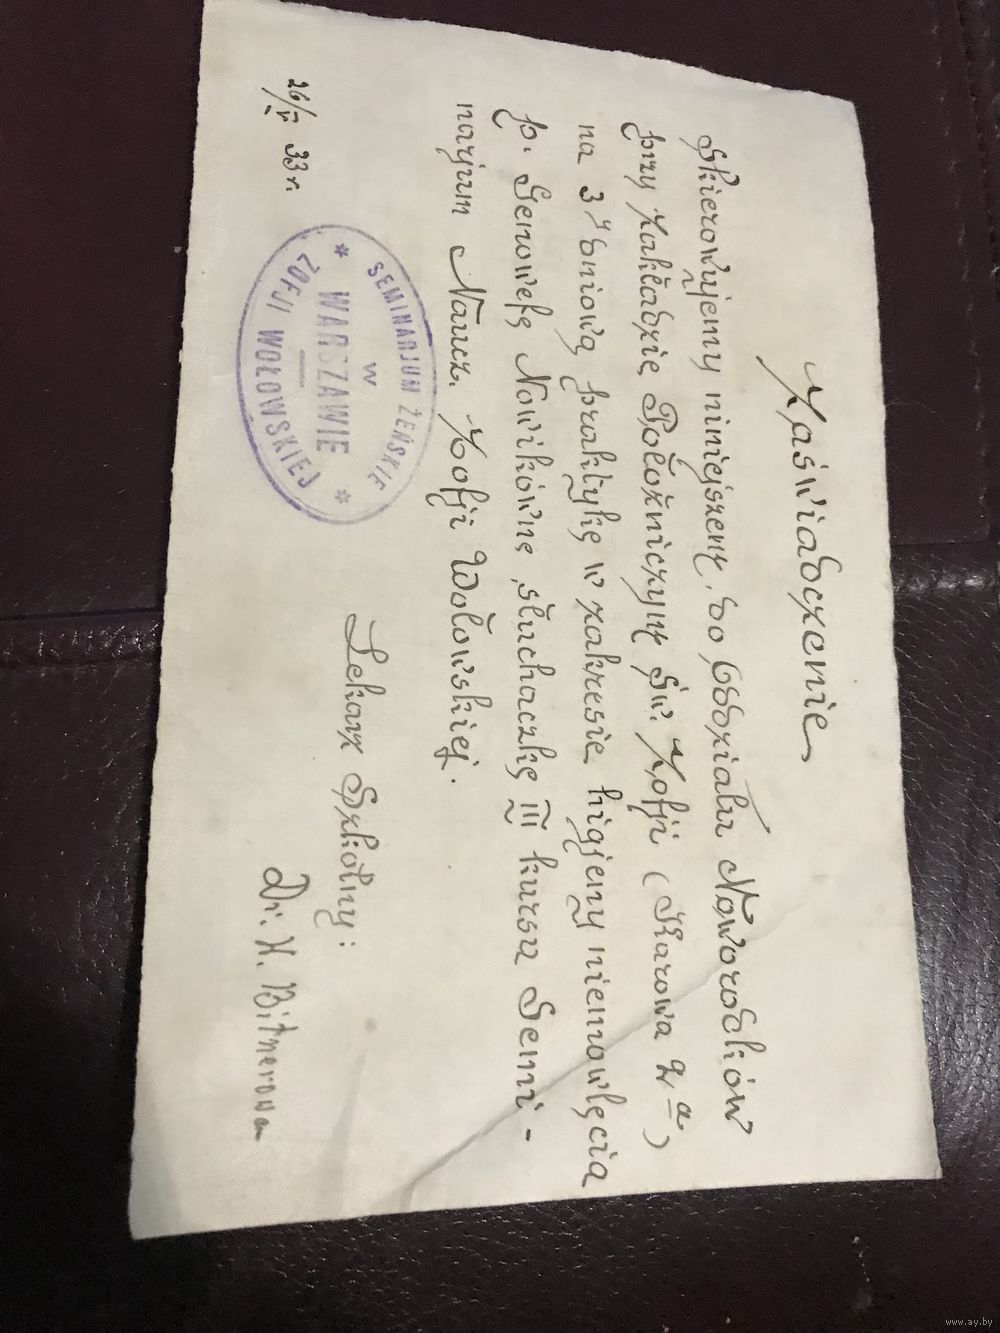 Zaświadczenie
Skierowujemy niniejszem do Oddziału Noworodków
przy zakładzie Położniczym Św. Zofji (Karowa 2 a)
na 3 dniową praktykę w zakresie higjeny niemowlęcia
p. Genowefę Nowikównę, słuchaczkę III kursu Semi-
narjum Naucz. Zofji Wołowskiej.
Lekarz Szkolny:
Dr. H. Bitnerowa
26/V 33 r.
SEMINARJUM ŻEŃSKIE
w
* WARSZAWIE *
ZOFJI WOŁOWSKIEJ
www.ay.by